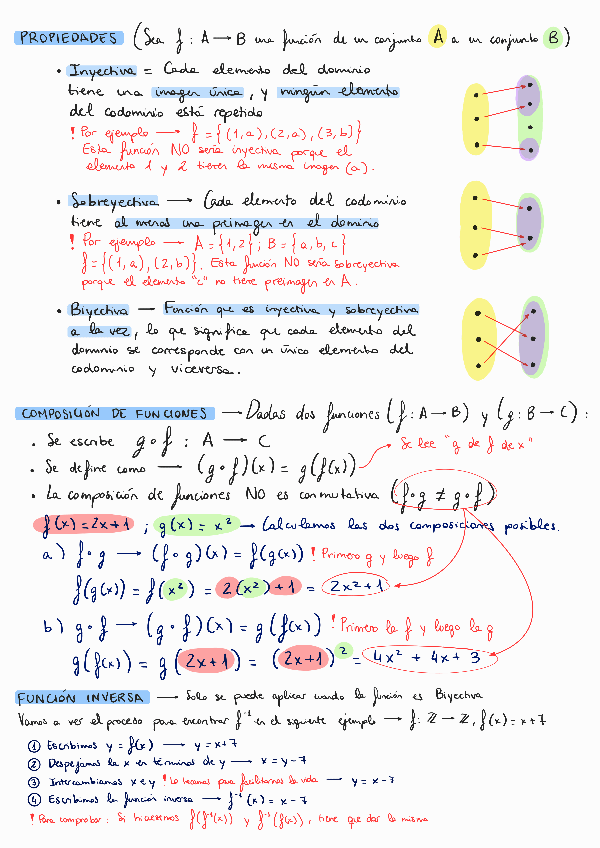 PROPIEDADES (Sea f : A → B una función de un conjunto A a un conjunto B)
• Inyectiva = Cada elemento del dominio
tiene una imagen única, y ningún elemento
del codominio está repetido
! Por ejemplo → f = {(1,a),(2,a),(3,b)}
Esta función NO sería inyectiva porque el
elemento 1 y 2 tienen la misma imagen (a).
• Sobreyectiva → Cada elemento del codominio
tiene al menos una preimagen en el dominio
! Por ejemplo → A = {1,2} ; B = {a,b,c}
f = {(1,a),(2,b)}. Esta función NO sería sobreyectiva
porque el elemento "c" no tiene preimagen en A.
• Biyectiva — Función que es inyectiva y sobreyectiva
a la vez, lo que significa que cada elemento del
dominio se corresponde con un único elemento del
codominio y viceversa.
COMPOSICIÓN DE FUNCIONES → Dadas dos funciones (f: A → B) y (g: B → C) :
• Se escribe g∘f : A → C
Se lee "g de f de x"
• Se define como → (g∘f)(x) = g(f(x))
• La composición de funciones NO es conmutativa (f∘g ≠ g∘f)
f(x) = 2x+1 ; g(x) = x² → Calculamos las dos composiciones posibles.
a) f∘g → (f∘g)(x) = f(g(x)) ! Primero g y luego f
f(g(x)) = f(x²) = 2(x²)+1 = 2x²+1
b) g∘f → (g∘f)(x) = g(f(x)) ! Primero la f y luego la g
g(f(x)) = g(2x+1) = (2x+1)² = 4x² + 4x + 3
FUNCIÓN INVERSA → Solo se puede aplicar cuando la función es Biyectiva
Vamos a ver el proceso para encontrar f⁻¹ en el siguiente ejemplo → f: ℤ → ℤ, f(x) = x+7
① Escribimos y = f(x) → y = x+7
② Despejamos la x en términos de y → x = y-7
③ Intercambiamos x e y ! Lo hacemos para facilitarnos la vida → y = x-7
④ Escribimos la función inversa → f⁻¹(x) = x-7
! Para comprobar: Si hacemos f(f⁻¹(x)) y f⁻¹(f(x)), tiene que dar lo mismo